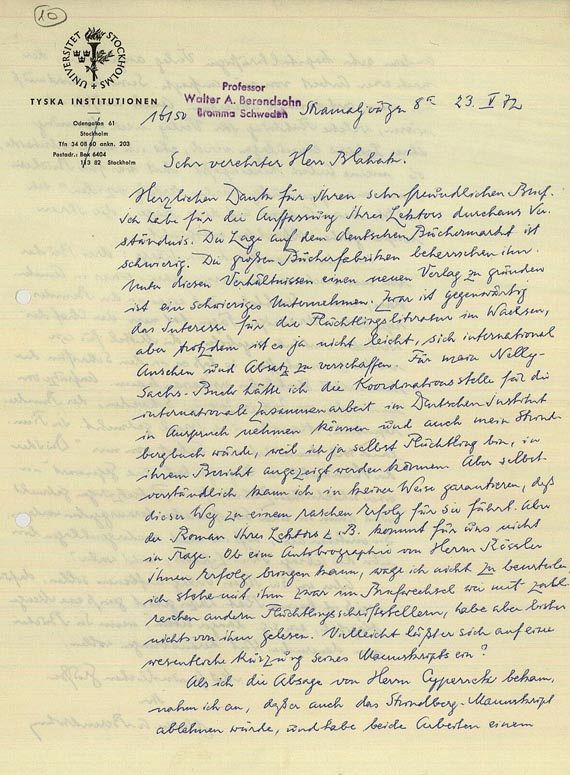 10
UNIVERSITET STOCKHOLMS
TYSKA INSTITUTIONEN
Odengatan 61
Stockholm
Tfn 34 08 60 ankn. 203
Postadr.: Box 6404
113 82 Stockholm
Professor
Walter A. Berendsohn
Bromma Schweden
16150 8 23. V 72
Sehr verehrter Herr Blahak!
Herzlichen Dank für Ihren sehr freundlichen Brief.
Ich habe für die Auffassung Ihres Lektors durchaus Ver-
ständnis. Die Lage auf dem deutschen Büchermarkt ist
schwierig. Die großen Bücherfabriken beherrschen ihn.
Unter diesen Verhältnissen einen neuen Verlag zu gründen
ist ein schwieriges Unternehmen. Zwar ist gegenwärtig
das Interesse für die Flüchtlingsliteratur im Wachsen,
aber trotzdem ist es ja nicht leicht, sich international
Ansehen und Absatz zu verschaffen. Für mein Nelly-
Sachs-Buch hätte ich die Koordinationsstelle für die
internationale Zusammenarbeit im Deutschen Institut
in Anspruch nehmen können und auch mein Strind-
bergbuch würde, weil ich ja selbst Flüchtling bin, in
ihrem Bericht angezeigt werden können. Aber selbst-
verständlich kann ich in keiner Weise garantieren, daß
dieser Weg zu einem raschen Erfolg für Sie führt. Aber
der Roman Ihres Lektors z. B. kommt für uns nicht
in Frage. Ob eine Autobiographie von Herrn Rössler
Ihnen Erfolg bringen kann, wage ich nicht zu beurteilen
ich stehe mit ihm zwar im Briefwechsel wie mit zahl-
reichen andern Flüchtlingsschriftstellern, habe aber bisher
nichts von ihm gelesen. Vielleicht läßt er sich auf eine
wesentliche Kürzung seines Manuskripts ein?
Als ich die Absage von Herrn bekam,
nahm ich an, daß er auch das Strindberg-Manuskript
ablehnen würde, und habe beide Arbeiten einem